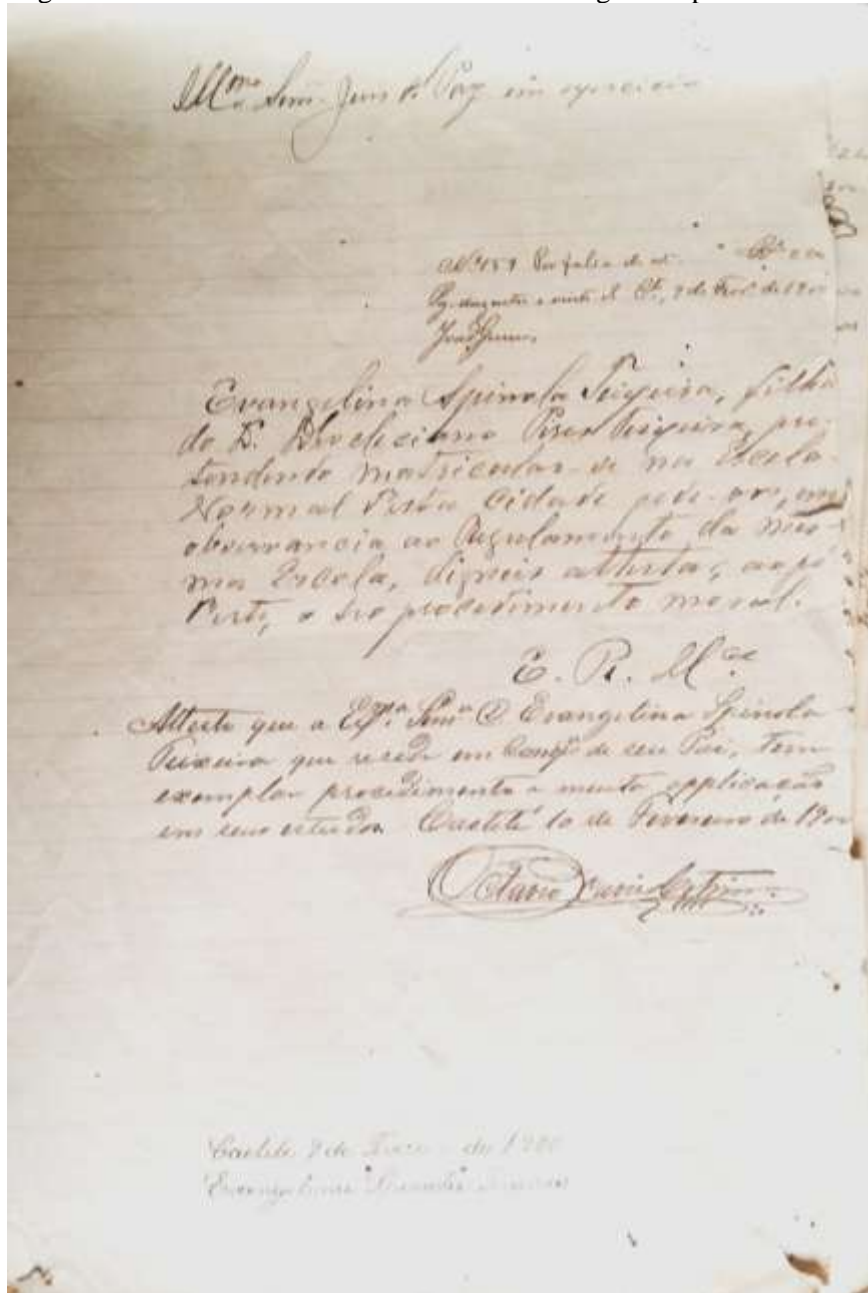 Illmo. Senr. Juis de Paz em exercicio
Nº 151 Por falta de
Pg. duzentos e vinte rs. Cte., 9 de Fevº de 1900
Evangelina Spinola Teixeira, filha
do D. Deocleciano Pires Teixeira, pre-
tendendo matricular-se na Escola
Normal desta Cidade pede-vos, em
observancia ao Regulamento da mes-
ma Escola, digneis attestar, ao pé
deste, o seo procedimento moral.
E. R. Mce
Attesto que a Exma. Senrª D. Evangelina Spinola
Teixeira que reside em Compª de seu Pai, tem
exemplar procedimento e muita applicação
em seus estudos. Caetité 10 de Fevereiro de 1900
Octavio
Caetité 9 de de 1900
Evangelina Spinola Teixeira